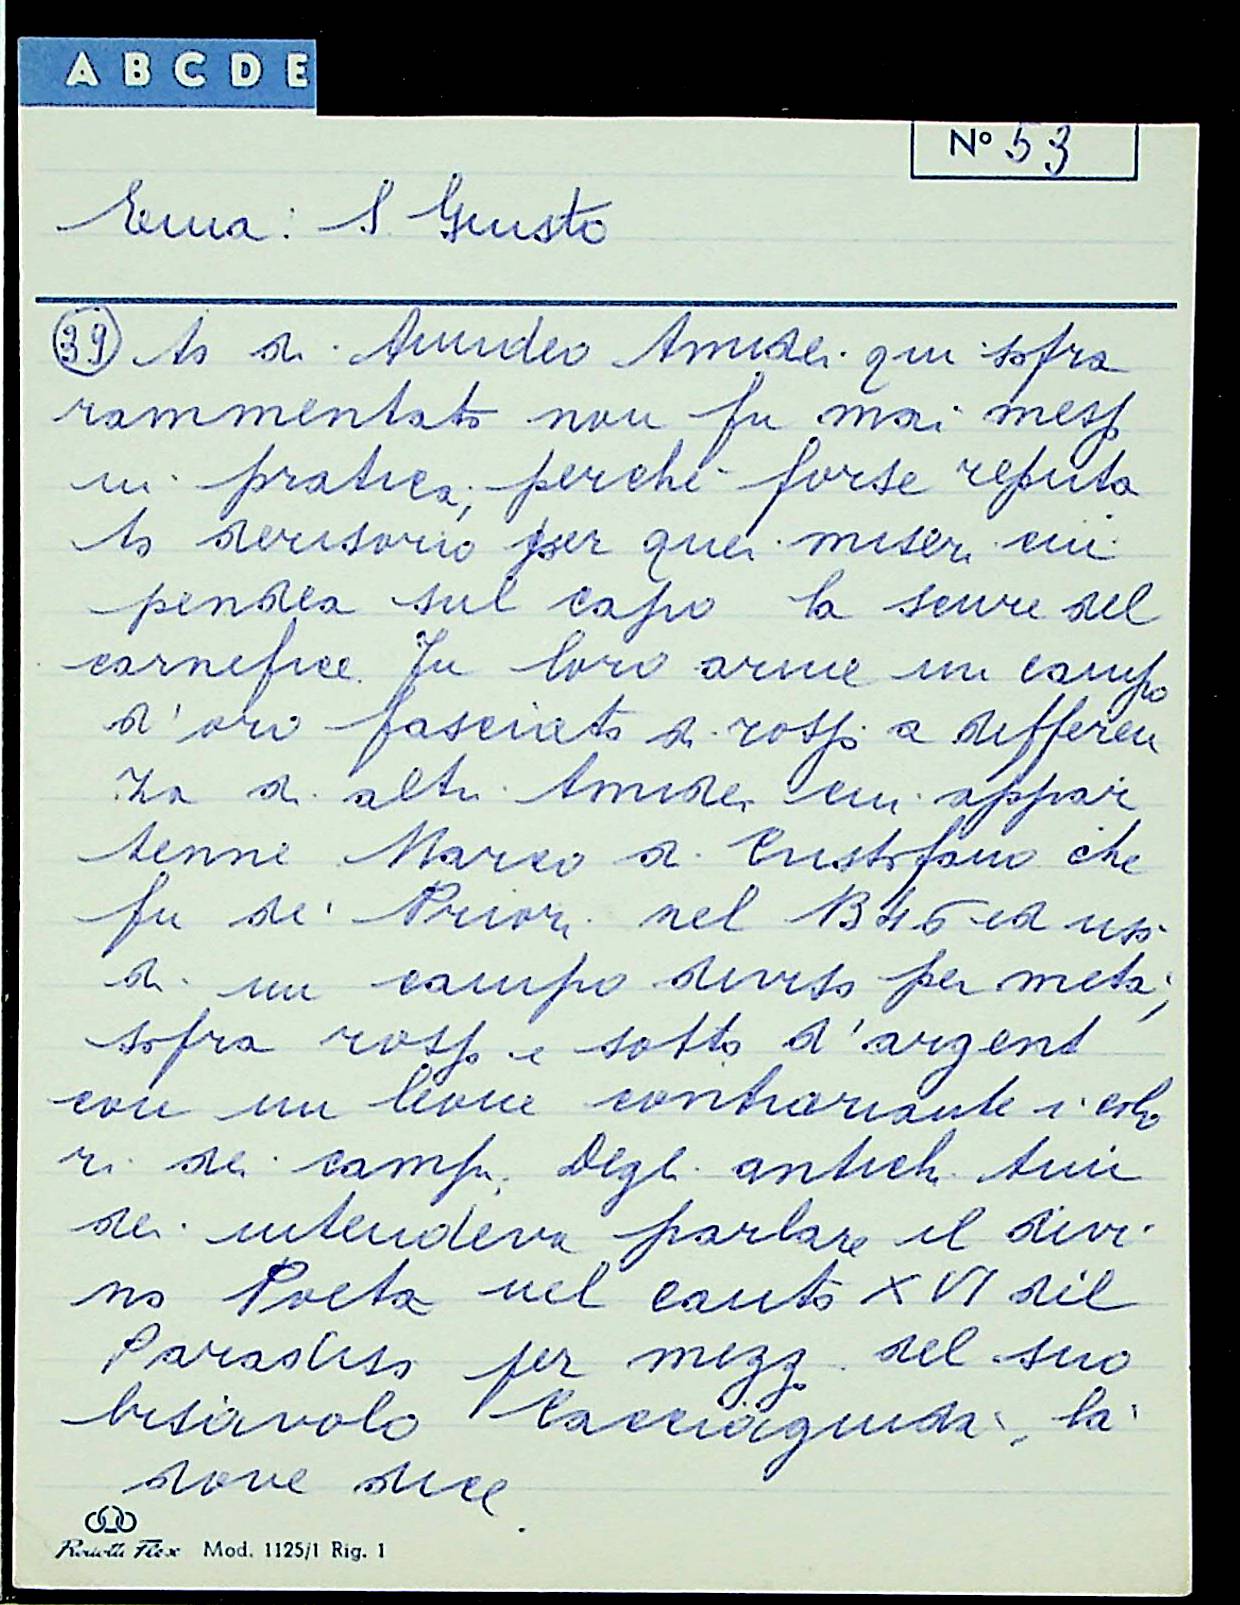 A B C D E
Nº 53
Ema: S. Giusto
39 to di Amideo Amidei qui sopra
rammentato non fu mai messo
in pratica, perché forse reputa
to derisorio per quei miseri cui
pendea sul capo la scure del
carnefice. Fu loro arme un campo
d'oro fasciato di rosso a differen
za di altri Amidei cui appar
tenne Marco di Cristofano che
fu dei Priori nel 1346 ed usò
di un campo diviso per metà,
sopra rosso e sotto d'argent
con un leone contrariante i colo
ri dei campi. Degli antichi Ami
dei intendeva parlare il divi
no Poeta nel canto XVI del
Paradiso per mezzo del suo
bisavolo Cacciaguida, là
dove dice
Mod. 1125/1 Rig. 1